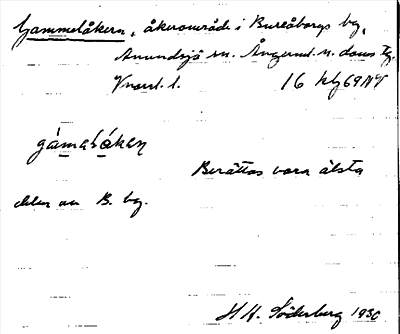 Gammelåkern, åkerområde i Bureåborgs by,
Anundsjö sn. Ångerml. n. doms tg.
Vnorrl. l. 16 Hh69NV
gámaɫákeņ
Berättas vara älsta
delen av B. by.
H H. Söderberg 1930